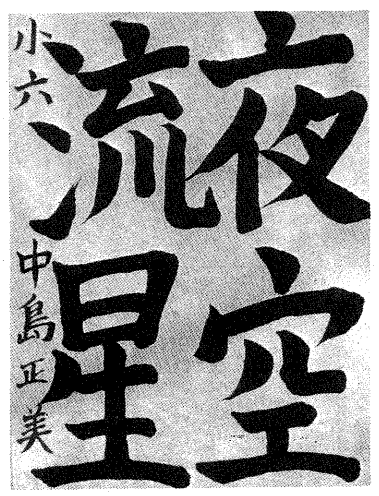 夜空
流星
小六 中島正美